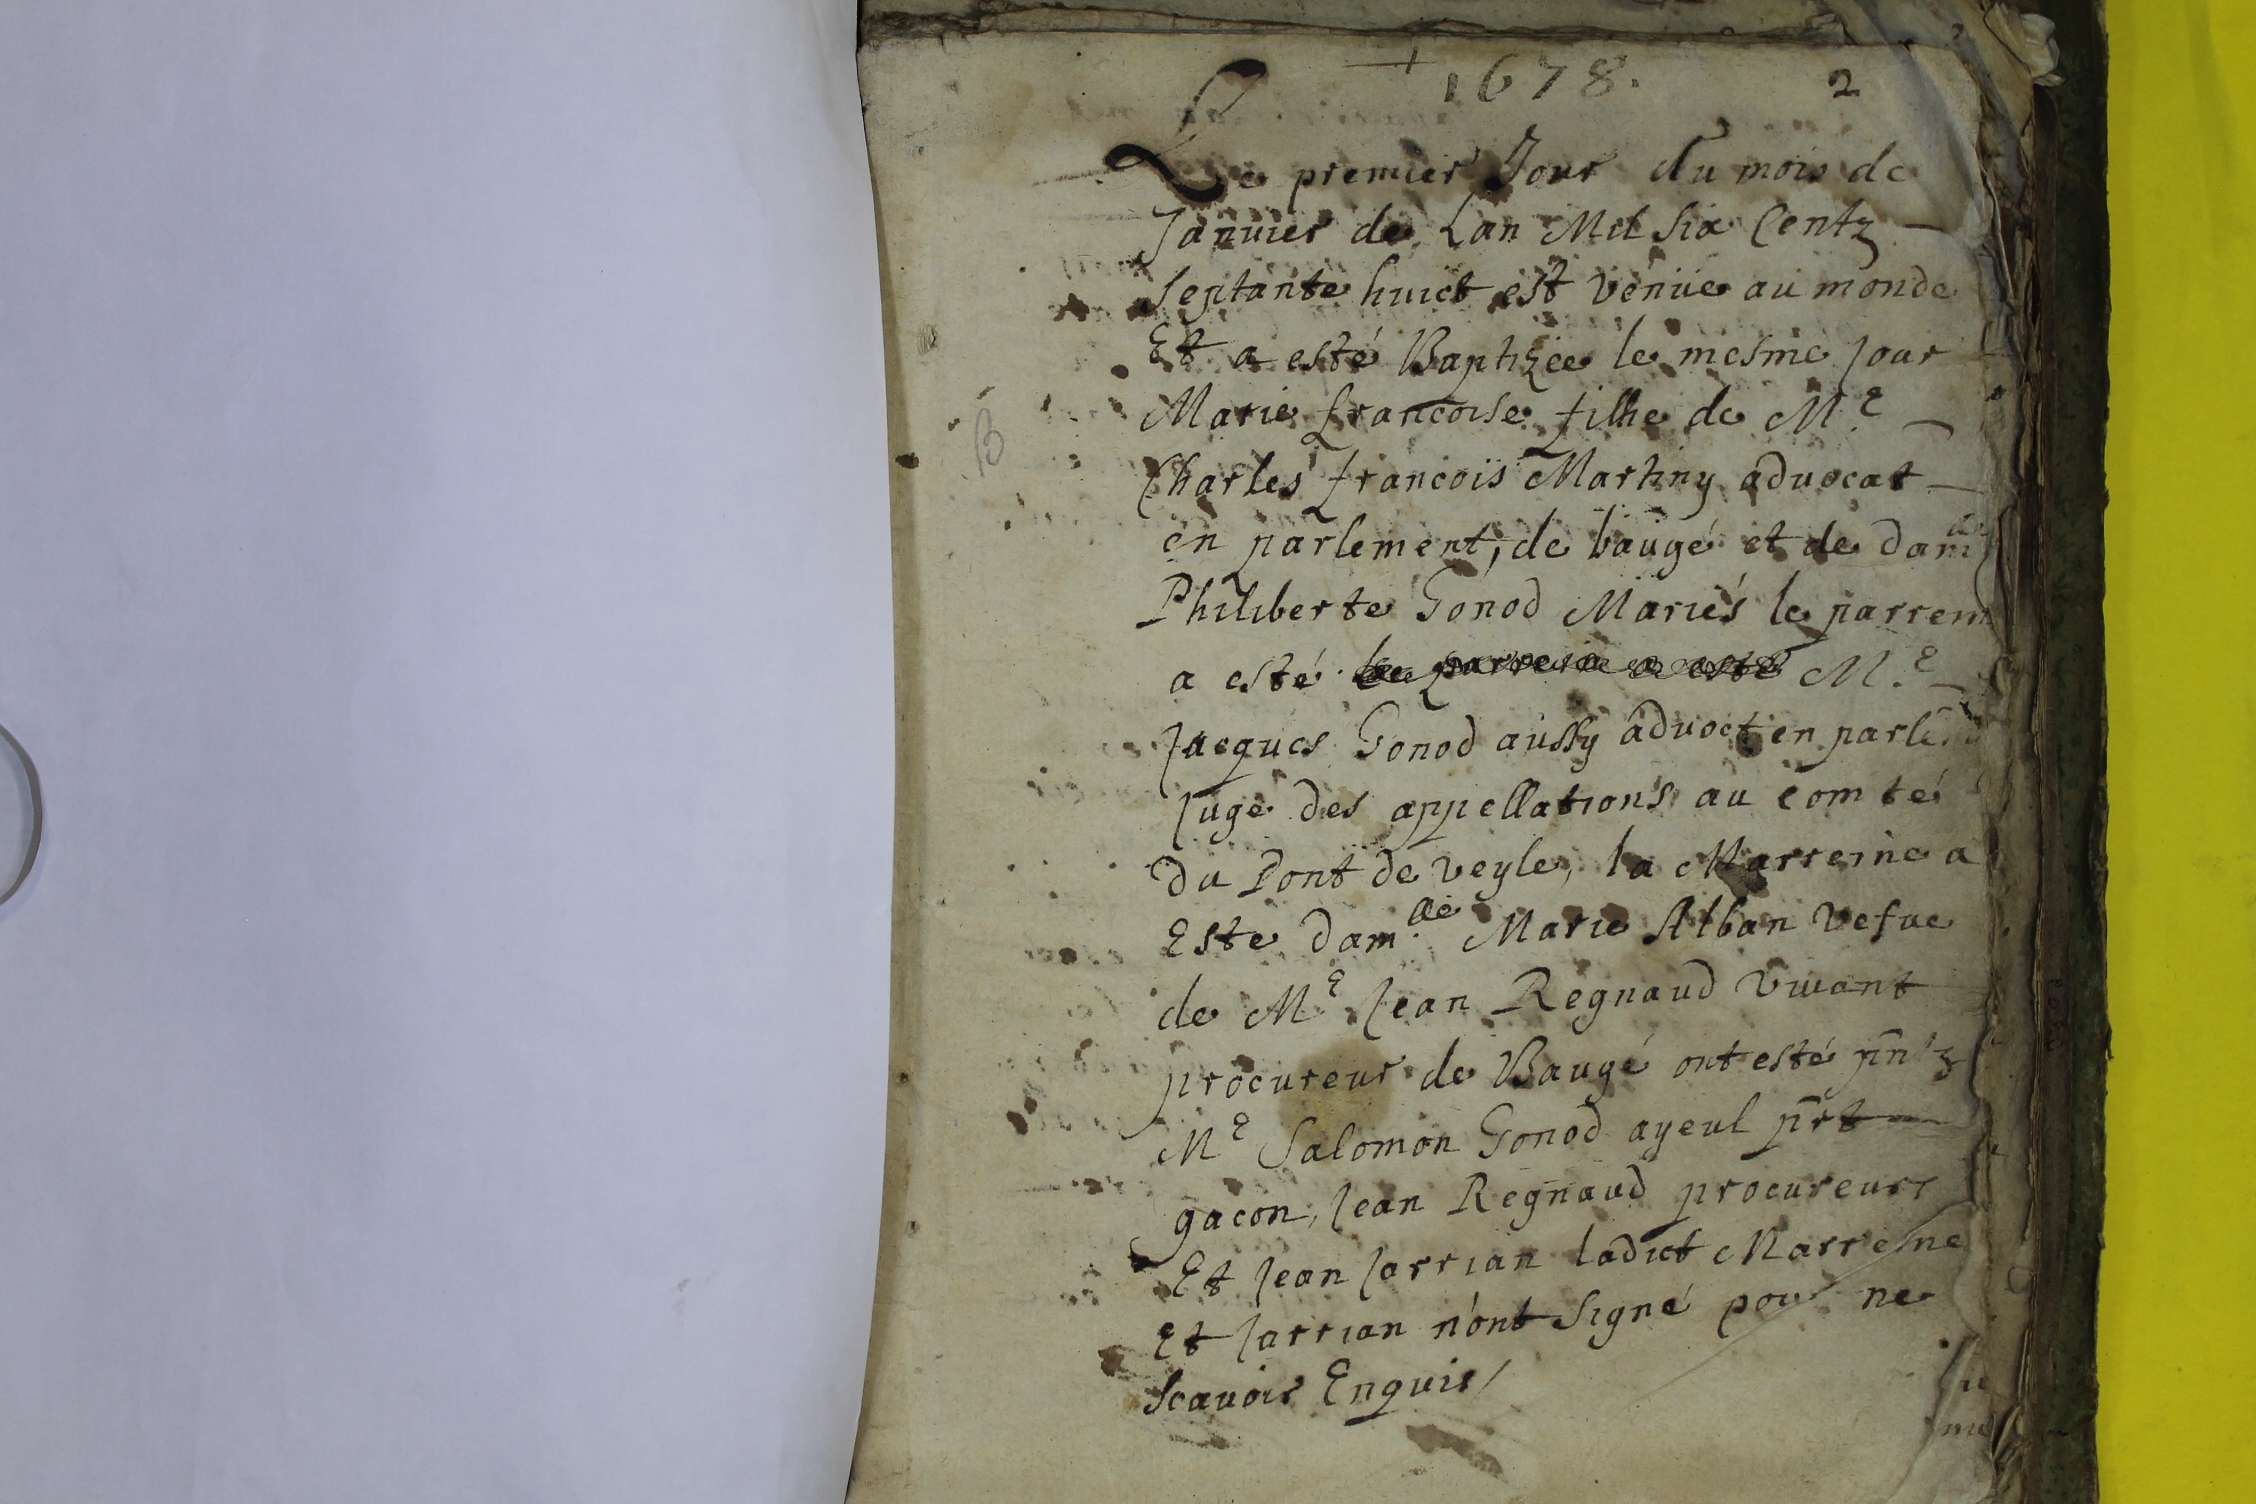 1678. 2
Le premier Jour du mois de
Janvier de Lan Mil Six Centz
septante huict est venüe au monde
Et a esté Baptizée le mesme jour
B
Marie francoise fille de Me
Charles francois Martiny advocat
en parlement, de baugé et de damlle
Philiberte Gonod Mariés le parrein
a esté le parrein a esté Me
Jacques Gonod aussy advoct en parle
Juge des appellations au comté
du Pont de veyle, la Marreine a
Este damlle Marie Alban vefue
de Me Jean Regnaud vivant
procureur de Baugé ont esté pntz
Me Salomon Gonod ayeul
gacon, Jean Regnaud procureurs
Et Jean Jarrian ladict Marreine
Et Jarrian n'ont signé pour ne
scavoir Enquis